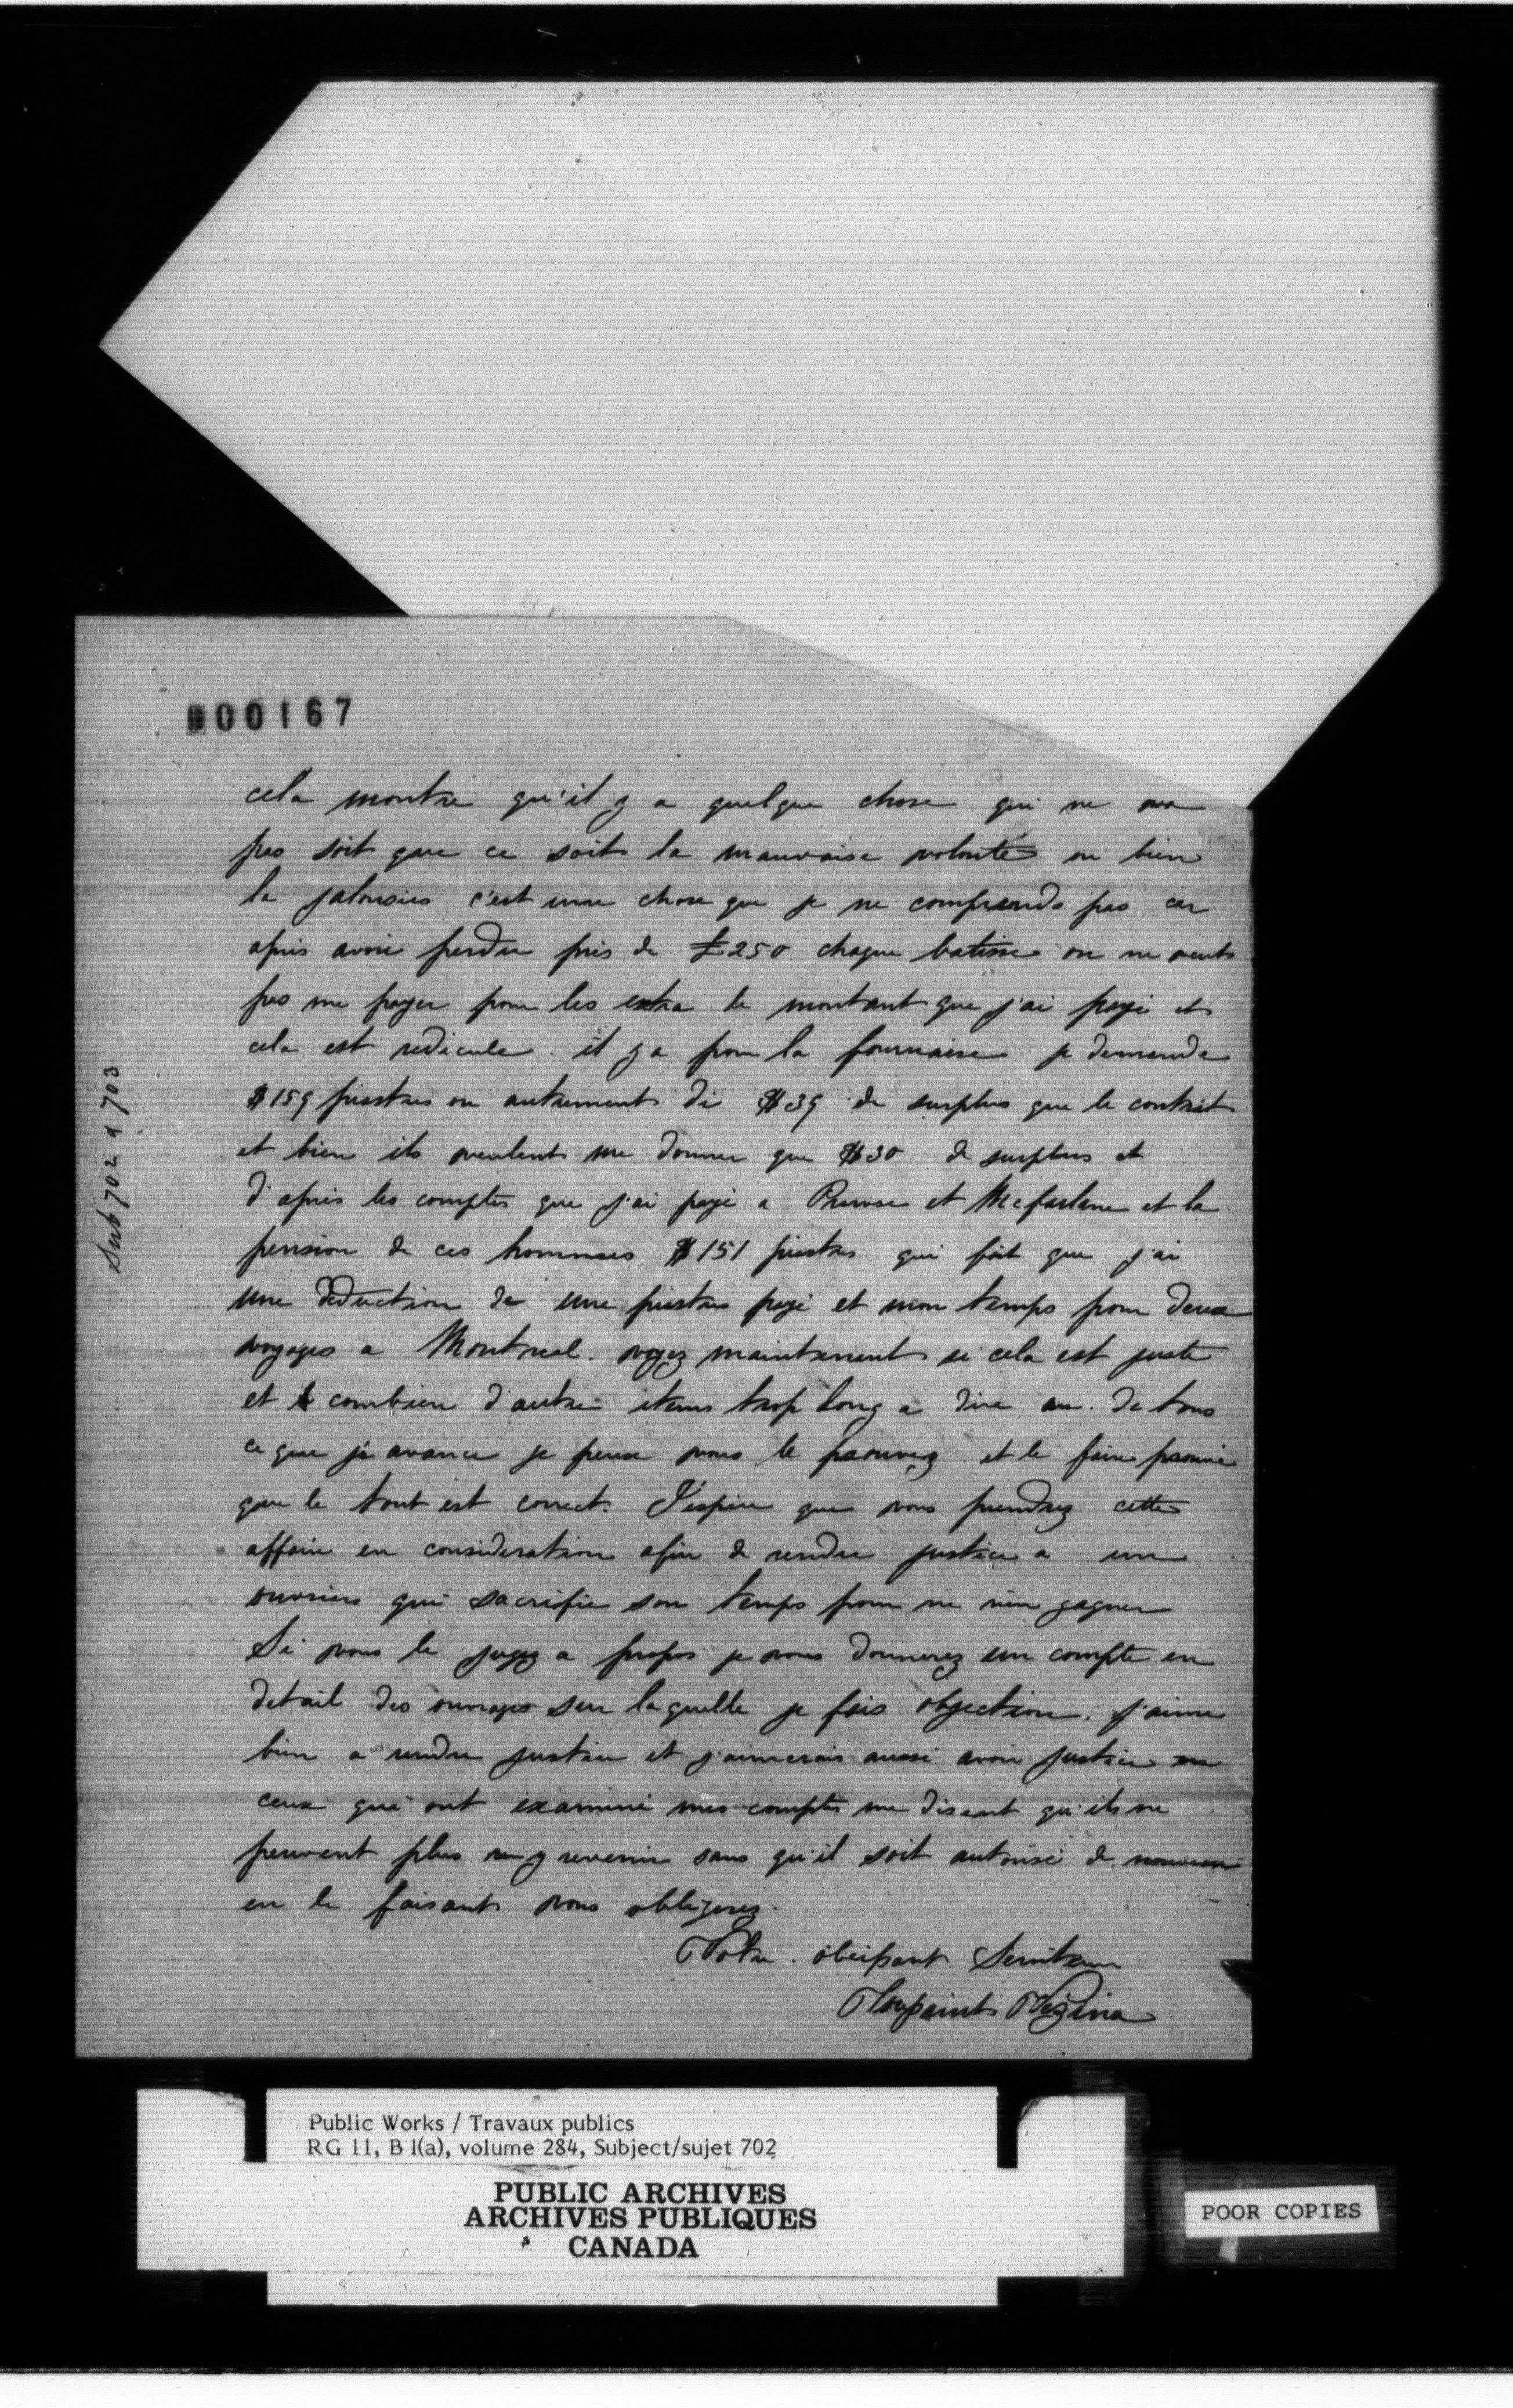 000167
cela montre qu'il y a quelque chose qui ne va
pas soit que ce soit la mauvaise volonté ou bien
la jalousies c'est une chose que je ne comprends pas car
apris avoir perdu pris de £250 chaque batisse on ne veut
pas me payer pour les extra le montant que j'ai payé et
cela est redicule. il y a pour la fournaise je demande
$159 piastres ou autrement di $39 de surplus que le contrat
et bien ils veulent me donner que $30 de surplus et
d'apris les comptes que j'ai payé a et Mcfarlane et la
pension de ces hommes $151 piastres qui fait que j'ai
une déduction de une piastres payé et mon temps pour deux
voyages a Montreal. voyez maintenent si cela est juste
et combien d'autre items trop long a dire de tous
ce que j'a avance je peux vous le prouvez et le faire prouvé
que le tout est correct. J'éspire que vous prendrez cette
affaire en consideration afin de rendre justice a un
ouvriers qui sacrifie son temps pour ne rien gagner
Si vous le jugez a propos je vous donnerez un compte en
detail des ouvrages sur laquelle je fais objection. j'aime
bien a rendre justice et j'aimerais aussi avoir justice
ceux qui ont examiné mes comptes me disent qu'ils ne
peuvent plus y revenir sans qu'il soit autorisé de nouveau
en le faisant vous obligerez.
Votre. obeissant Serviteur
Toupaint Vézina
Sub 702 a 703
Public Works / Travaux publics
RG 11, B 1(a), volume 284, Subject/sujet 702
PUBLIC ARCHIVES
ARCHIVES PUBLIQUES
CANADA
POOR COPIES